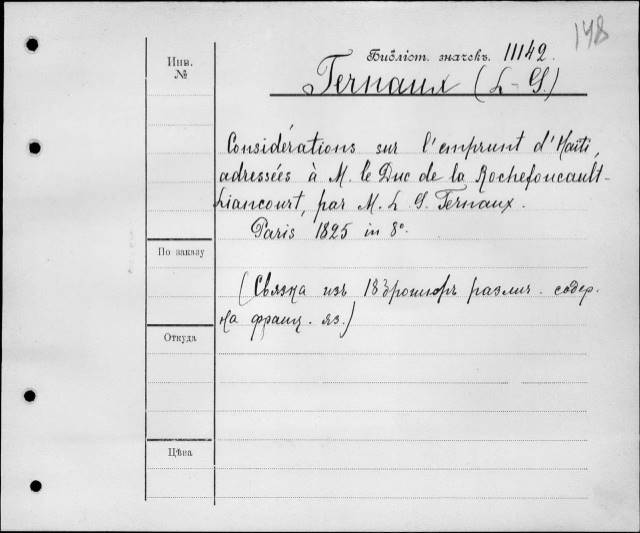 148
Библіот. значекъ. 11142.
Инв.
№
Ternaux (L-G)
Considérations sur l'emprunt d'Haïti,
adressées à M. le Duc de la Rochefoucault-
Liancourt, par M. L. G. Ternaux.
Paris 1825 in 8º.
По заказу
(Связка изъ 18 брошюръ различ. содер.
на франц. яз.)
Откуда
Цѣна